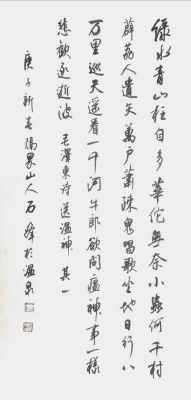 绿水青山枉自多华佗无奈小虫何千村
薜荔人遗矢万户萧疏鬼唱歌坐地日行八
万里巡天遥看一千河牛郎欲问瘟神事一样
悲欢逐逝波 毛泽东诗送瘟神其一
庚子新春阳界山人石峰于温泉